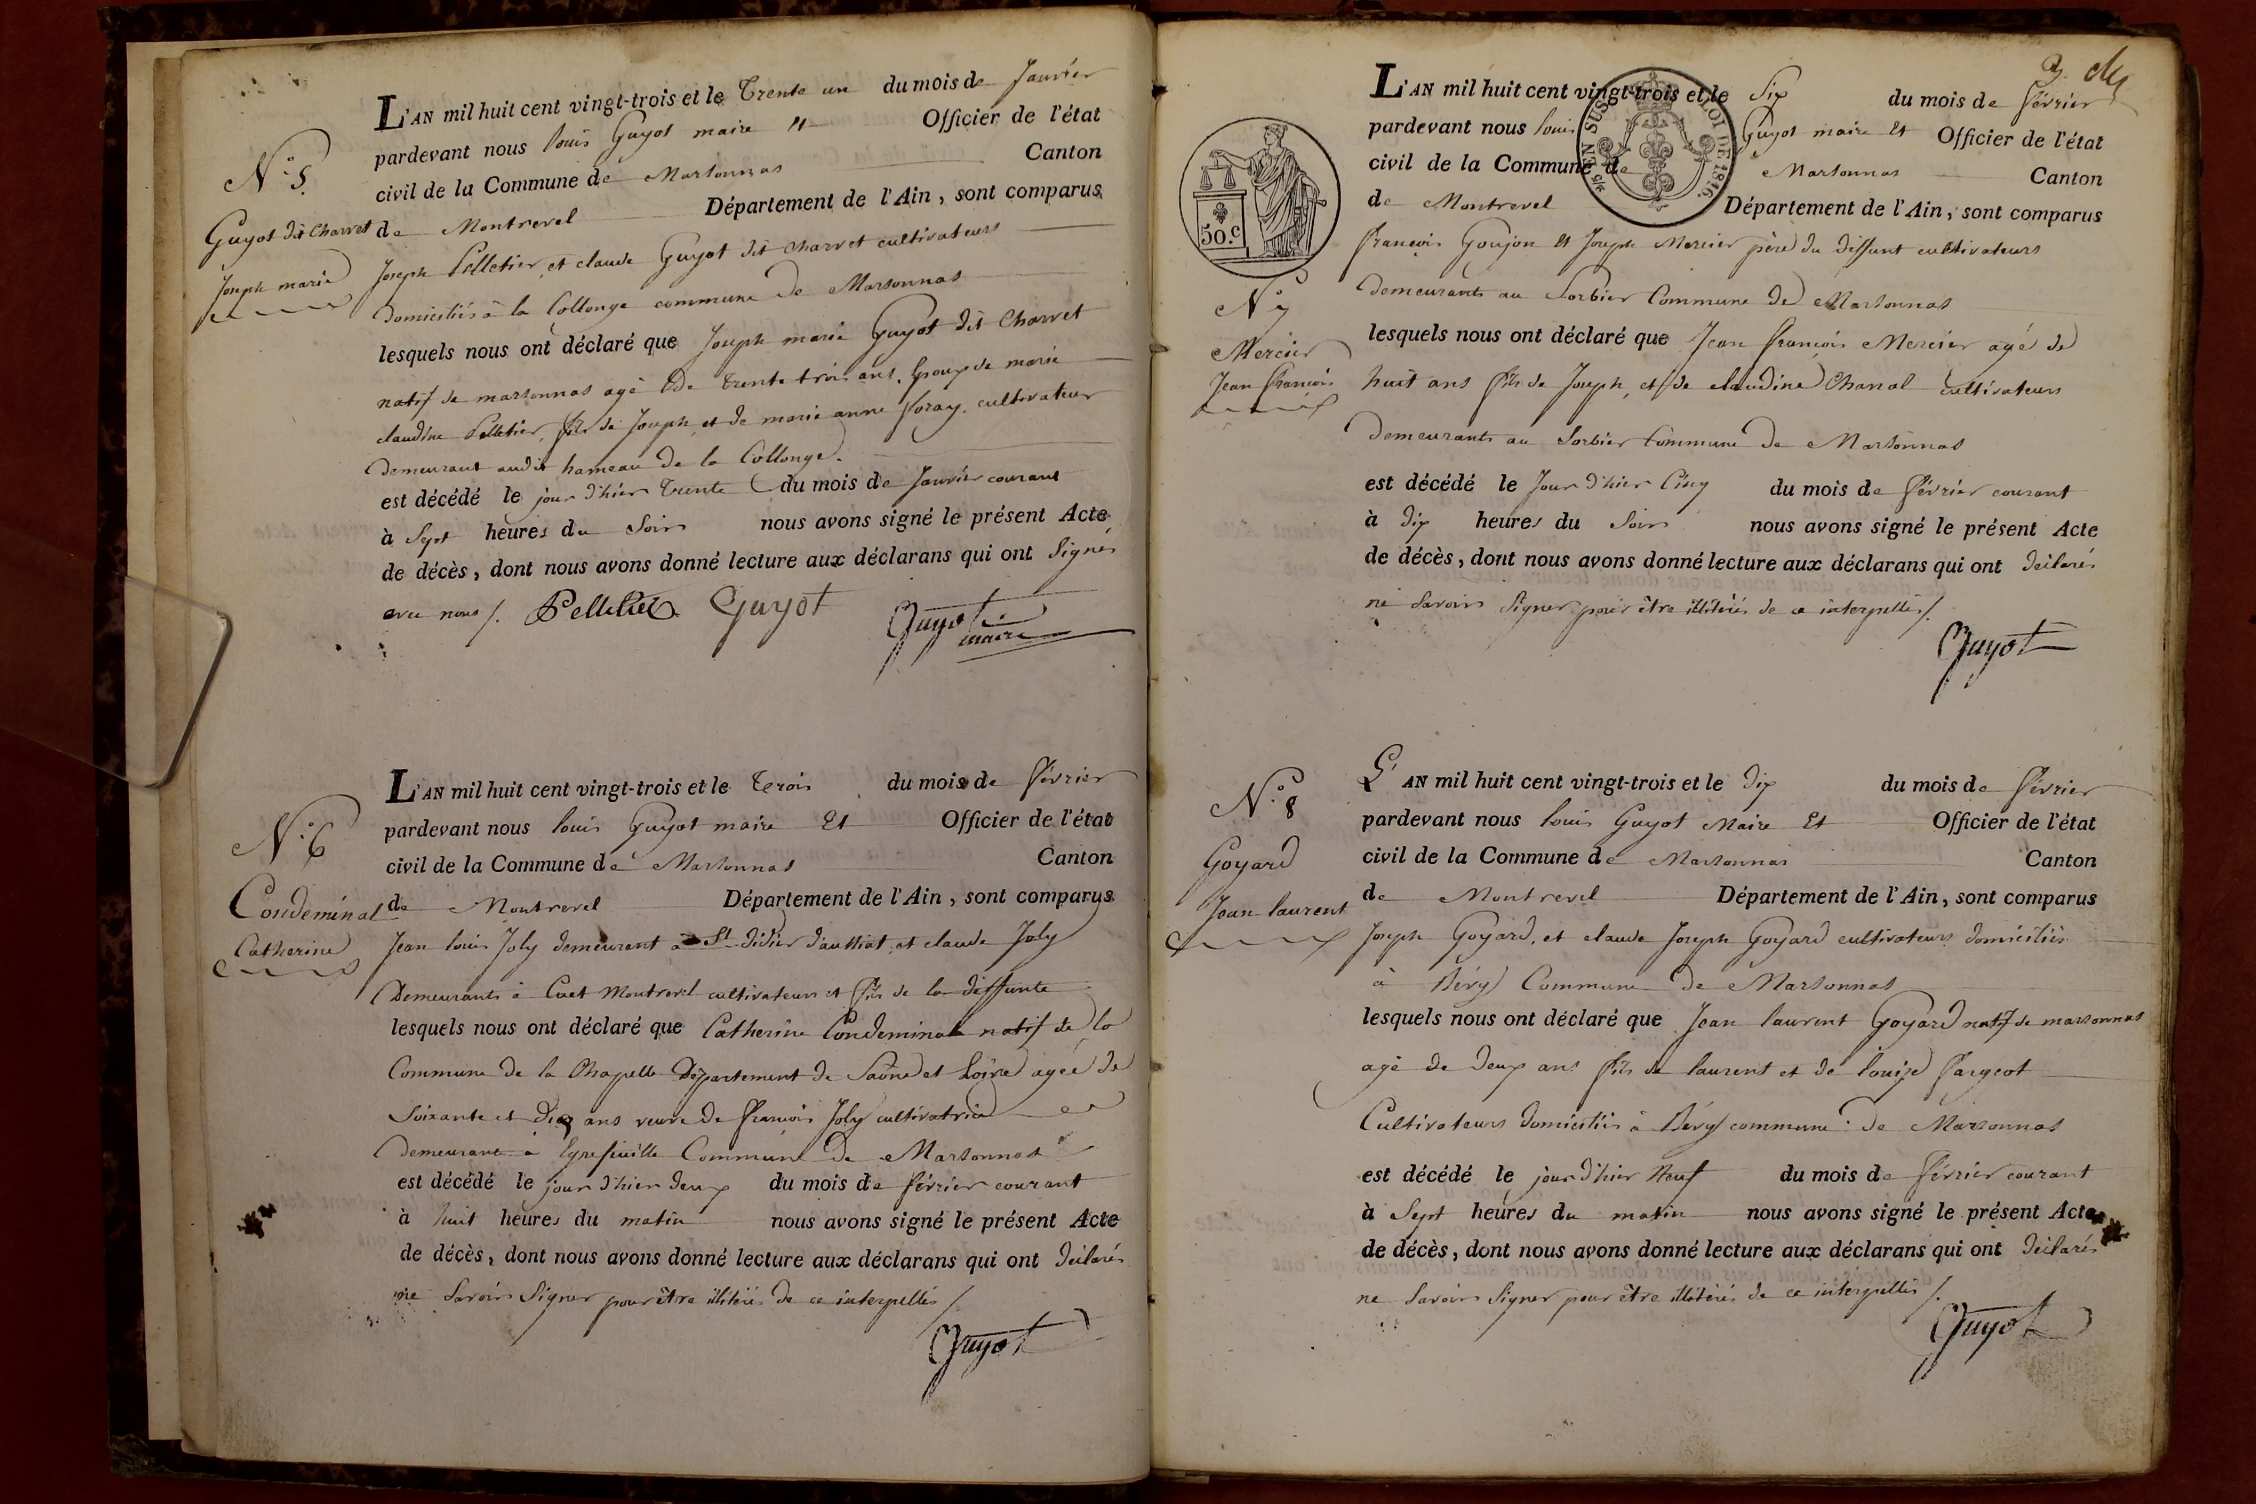 N.° 5.
Guyot dit Charvet
Joseph marie
L'AN mil huit cent vingt-trois et le Trente un du mois de Janvier
pardevant nous louis Guyot maire et Officier de l'état
civil de la Commune de Marsonnas Canton
de Montrevel Département de l'Ain, sont comparus
Joseph Pelletier, et claude Guyot dit charvet cultivateurs
domiciliés à la Collonge commune de Marsonnas
lesquels nous ont déclaré que Joseph marie Guyot dit Charvet
natif de marsonnas agé de trente trois ans, Epoux de marie
claudine Pelletier, fils de Joseph, et de marie anne Foray, cultivateur
demeurant audit hameau de la Collonge.
est décédé le jour d'hier trente du mois de Janvier courant
à Sept heures du Soir nous avons signé le présent Acte
de décès, dont nous avons donné lecture aux déclarans qui ont Signés
avec nous /. Pelletier Guyot Guyot
maire
N.° 6
Condeminal
Catherine
L'AN mil huit cent vingt-trois et le Trois du mois de Février
pardevant nous louis Guyot maire Et Officier de l'état
civil de la Commune de Marsonnas Canton
de Montrevel Département de l'Ain, sont comparus
Jean louis Joly demeurant à St didier d'aussiat, et claude Joly
Demeurants à Cuet Montrevel cultivateurs et fils de la deffunte
lesquels nous ont déclaré que Catherine Condeminal natif de la
Commune de la Chapelle Département de Saône et Loire agée de
Soixante et Dix ans veuve de François Joly cultivatrice
demeurant à Commune de Marsonnas
est décédé le jour d'hier deux du mois de Février courant
à huit heures du matin nous avons signé le présent Acte
de décès, dont nous avons donné lecture aux déclarans qui ont déclarés
ne Savoir Signer pour être illiterés de ce interpellés /.
Guyot
3.
SUS LOI DE 1816.
50.C
N.° 7
Mercier
Jean François
L'AN mil huit cent vingt-trois et le Six du mois de Février
pardevant nous louis Guyot maire Et Officier de l'état
civil de la Commune de Marsonnas Canton
de Montrevel Département de l'Ain, sont comparus
François Goujon et Joseph Mercier père du deffunt cultivateurs
demeurants au Sorbier Commune de Marsonnas
lesquels nous ont déclaré que Jean François Mercier agé de
huit ans fils de Joseph, et de claudine Chanal cultivateurs
demeurants au Sorbier Commune de Marsonnas
est décédé le Jour d'hier Cinq du mois de Février courant
à dix heures du Soir nous avons signé le présent Acte
de décès, dont nous avons donné lecture aux déclarans qui ont déclarés
ne Savoir Signer pour être illiterés de ce interpellés /.
Guyot
N.° 8
Goyard
Jean laurent
L'AN mil huit cent vingt-trois et le dix du mois de Février
pardevant nous louis Guyot Maire Et Officier de l'état
civil de la Commune de Marsonnas Canton
de Montrevel Département de l'Ain, sont comparus
Joseph Goyard, et claude Joseph Goyard cultivateurs domiciliés
à Béry Commune de Marsonnas
lesquels nous ont déclaré que Jean laurent Goyard natif de marsonnas
agé de deux ans fils de laurent et de louise Fargeot
Cultivateurs domiciliés à Béry commune de Marsonnas
est décédé le jour d'hier Neuf du mois de Février courant
à Sept heures du matin nous avons signé le présent Acte
de décès, dont nous avons donné lecture aux déclarans qui ont déclarés
ne Savoir Signer pour être illiterés de ce interpellés /.
Guyot